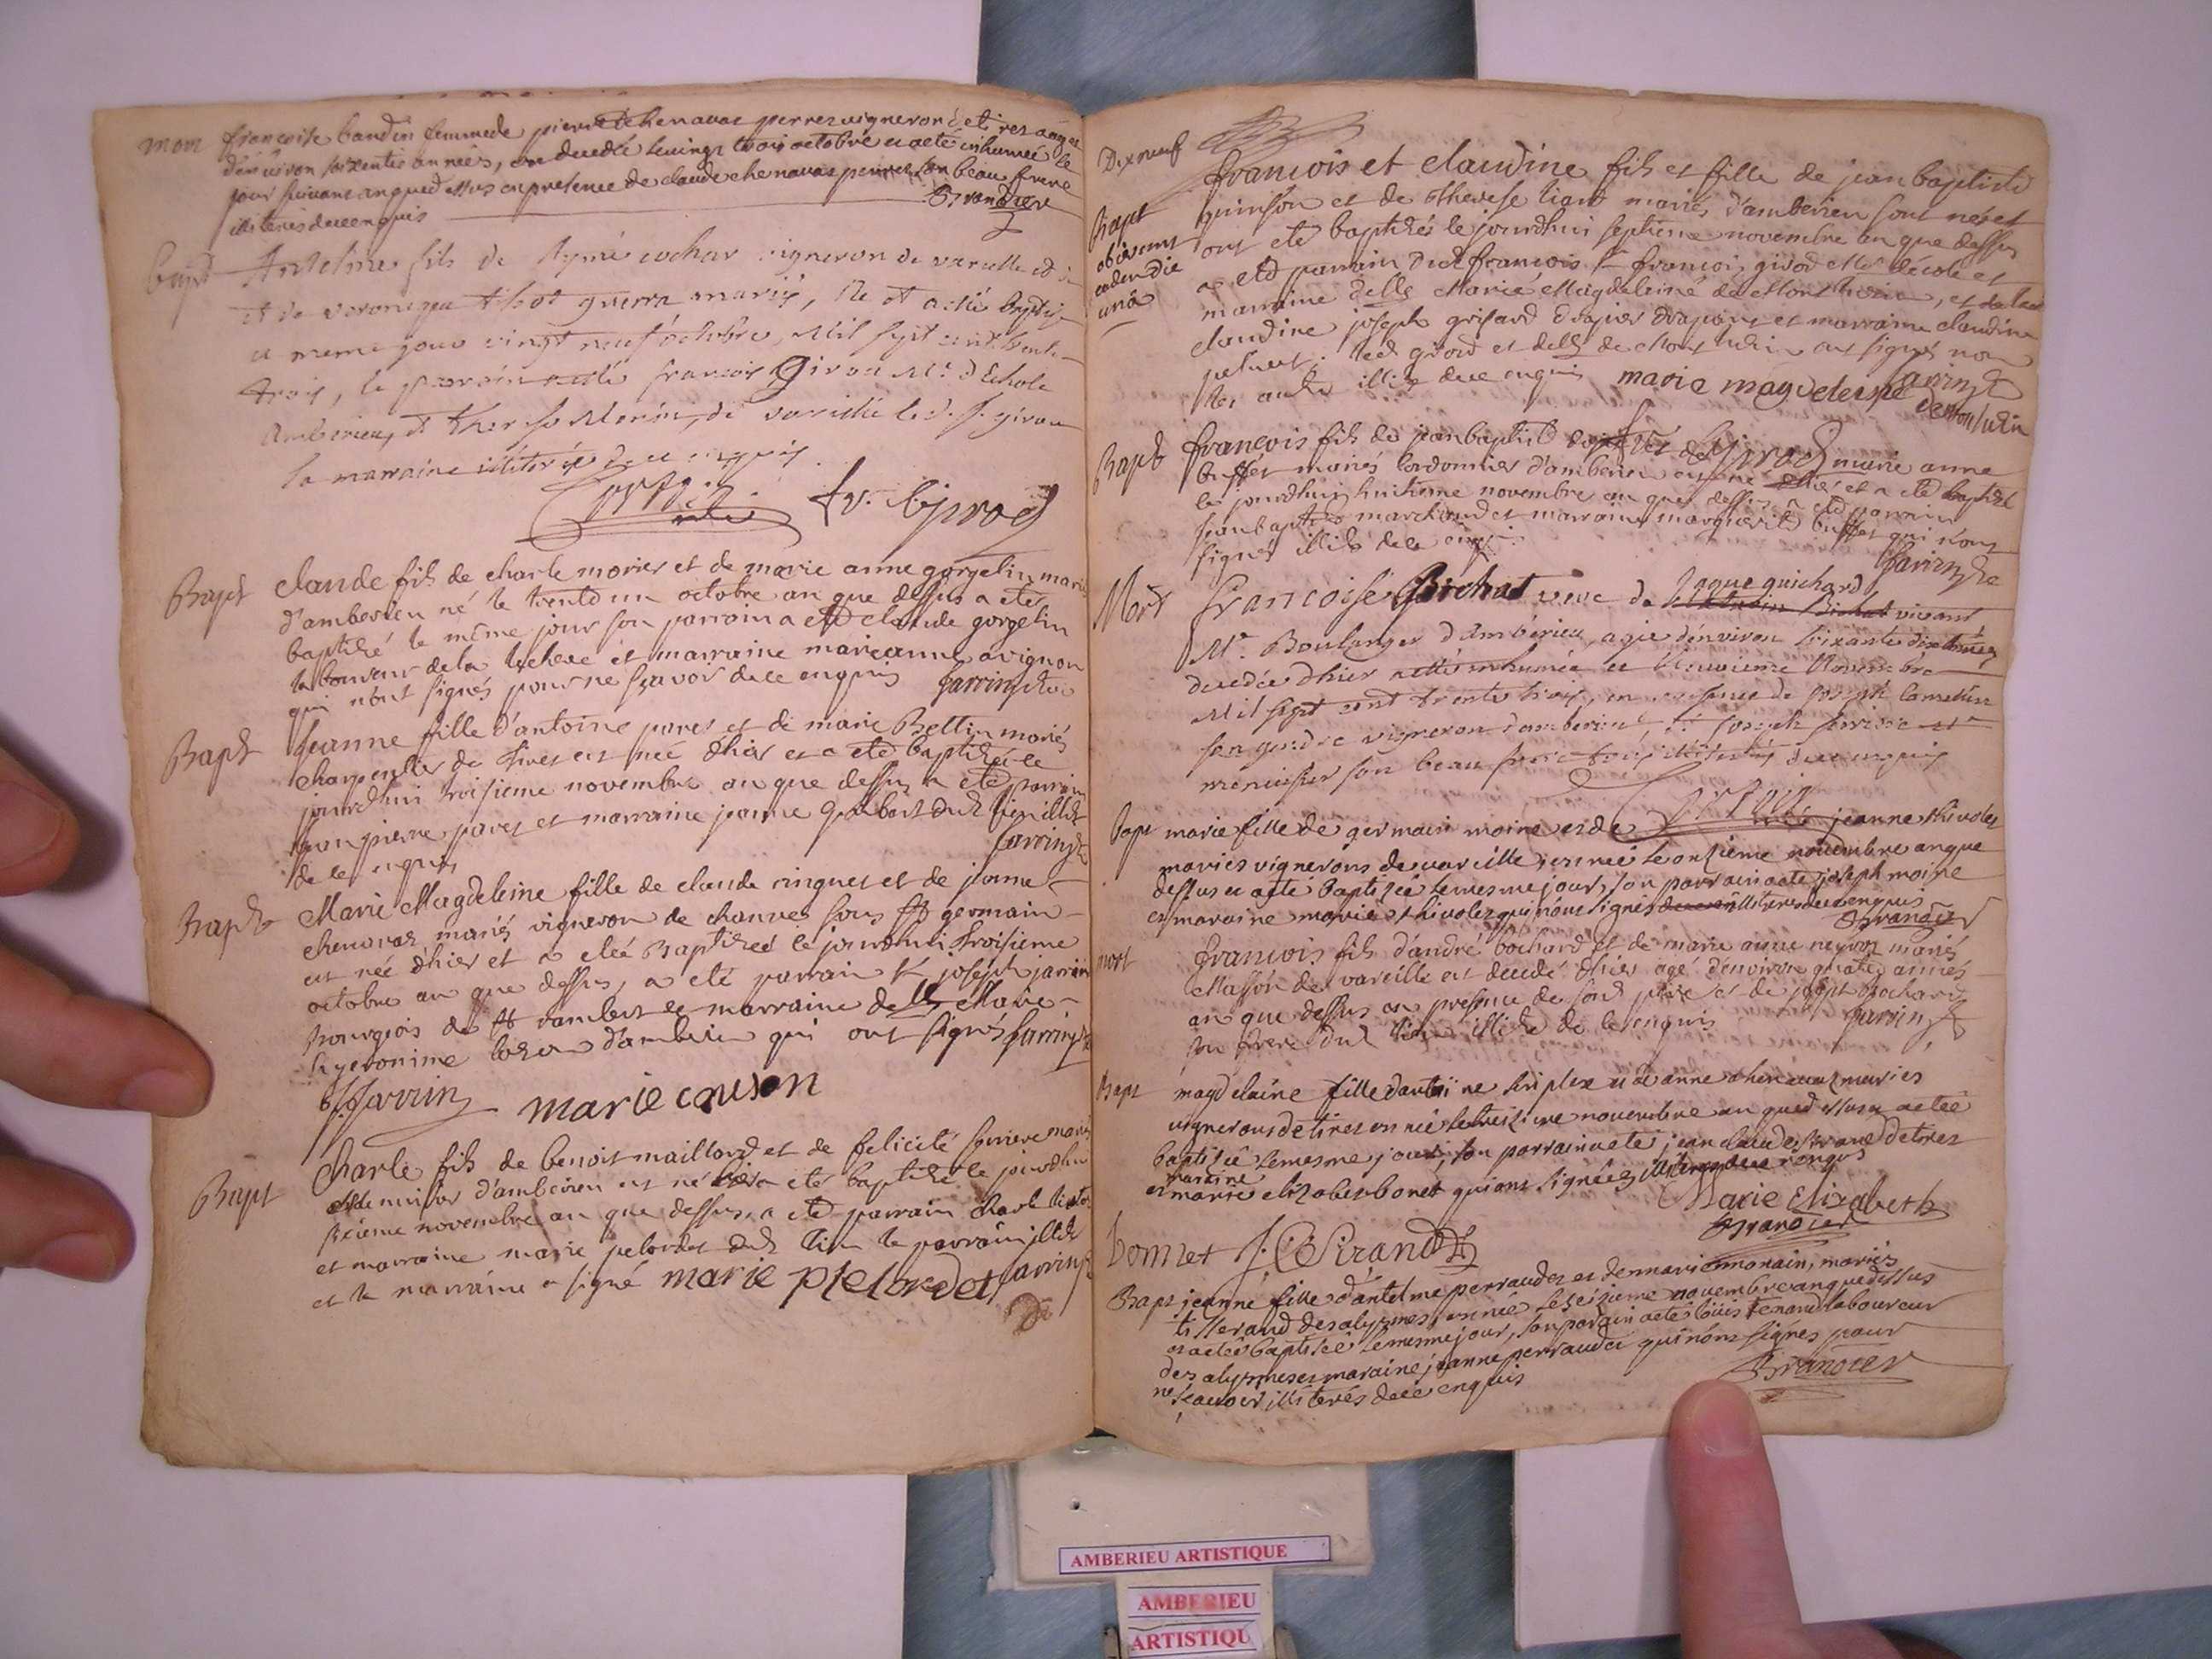 mort françoise baudin femme de pierre chenavas perres vigneron de tires aagée
d'environ soixente années, est decedée le vingt trois octobre et a eté inhumée le
jour suivant an que dessus en presence de claude chenavas perres son beau frere
illiterés de ce enquis
Brandier
bapt Anteline fils de Aymé cochar vigneron de vareille
et de veronique thot guerra mariés, né et a été baptisé
ce meme jour vingt neuf octobre, Mil sept cent trente
trois, le parrain a été françois Girod Mt. d'Echole
Amberieu, et therese Morin, de vareille led. s. girod
la marraine illiterée de ce enquis
fr. Girod
Bapt claude fils de charle morier et de marie anne gorgelin mariés
d'amberieu né le trente un octobre an que dessus a eté
baptisé le même jour son parrain a eté claude gorgelin
laboureur de la lechere et marraine marieanne avignon
qui n'ont signés pour ne sçavoir de ce enquis Jarrin
Bapt Jeanne fille d'antoine pares et de marie Bettin mariés
charpentier de tires est née d'hier et a eté baptisée le
jourd'huy troisieme novembre an que dessus a eté parrain
jean pierre pares et marraine jeanne dud. lieu illit.
de ce enquis Jarrin
Bapt Marie Magdeleine fille de claude ringuet et de jeanne
chenavas mariés vigneron de chauves sous st germain
est née d'hier et a eté Baptisée le jourd'hui troisieme
octobre an que dessus, a eté parrain sr joseph jarrin
bourgeois de st rambert et marraine delle Marie
hyeronime d'amberieu qui ont signés Jarrin
J. Jarrin marie couson
Bapt Charle fils de benoit maillard et de felicité mariés
menuisier d'amberieu est né hier a eté baptisé le jourd'hui
sixieme novembre an que dessus, a eté parrain charle
et marraine marie pelordet dud. lieu le parrain illit.
et la marraine a signé marie pielordet Jarrin
Dix neuf
Bapt françois et claudine fils et fille de jean baptiste
guinson et de therese liard mariés d'amberieu sont nés et
ont eté baptisés le jourd'hui septieme novembre an que dessus
a eté parrain dud. françois sr françois girod Mt d'école et
marraine delle Marie Magdeleine de Montluzin, et de lad.
claudine joseph grisard drapier drapant et marraine claudine
led. girod et delle de Montluzin ont signés non
les autres illit. de ce enquis marie magdeleine Jarrin
demonludin
Bapt françois fils de jean baptiste et de Girod marie anne
buffet mariés cordonnier d'amberieu est né et a eté baptisé
le jourd'hui huitieme novembre an que dessus a eté parrain
jean baptiste marchand et marraine marguerite buffet qui n'ont
signés illit. de ce enquis Jarrin
Mort francoise Bichat veuve de Jaque guichard vivant
Mt. Boulanger d'Amberieu, agée d'environ soixante dix années
decedée d'hier a été inhumée ce neuvieme Novembre
Mil sept cent trente trois, en presence de joseph
son gendre vigneron d'amberieu, et joseph
menuisier son beau frere tous illiterés de ce enquis
bapt marie fille de germain moine et de jeanne thivolet
mariés vignerons de vareille, est née le onzieme novembre an que
dessus et a eté baptisée le mesme jour, son parrain a eté joseph moine
et maraine marie thivolet qui n'ont signés illiterés de ce enquis
Brandier
mort françois fils d'andré bochard et de marie anne neyron mariés
Masson de vareille est decedé d'hier agé d'environ quatre années
an que dessus en presence de sond. père et de joseph bochard
son frere dud. lieu illit. de ce enquis Jarrin
Bapt magdelaine fille d'antoine triplex et de anne chenavaz mariés
vignerons de tires est née le treizieme novembre an que dessus a eté
baptisée le mesme jour, son parrain a eté jean claude sirand de tires
maraine
et marie elizabet bonet qui ont signées
Marie Elizabeth
Brandier
bonnet J. C. Sirand
Bapt jeanne fille d'antelme perraudet et de marie monain, mariés
tisserand des alymes, est née le seizieme novembre an que dessus
et a eté baptisée le mesme jour, son parain a eté louis tenand laboureur
des alymes et maraine jeanne perraudet qui n'ont signés pour
ne sçavoir illiterés de ce enquis
Brandier
AMBERIEU ARTISTIQUE
AMBERIEU
ARTISTIQU